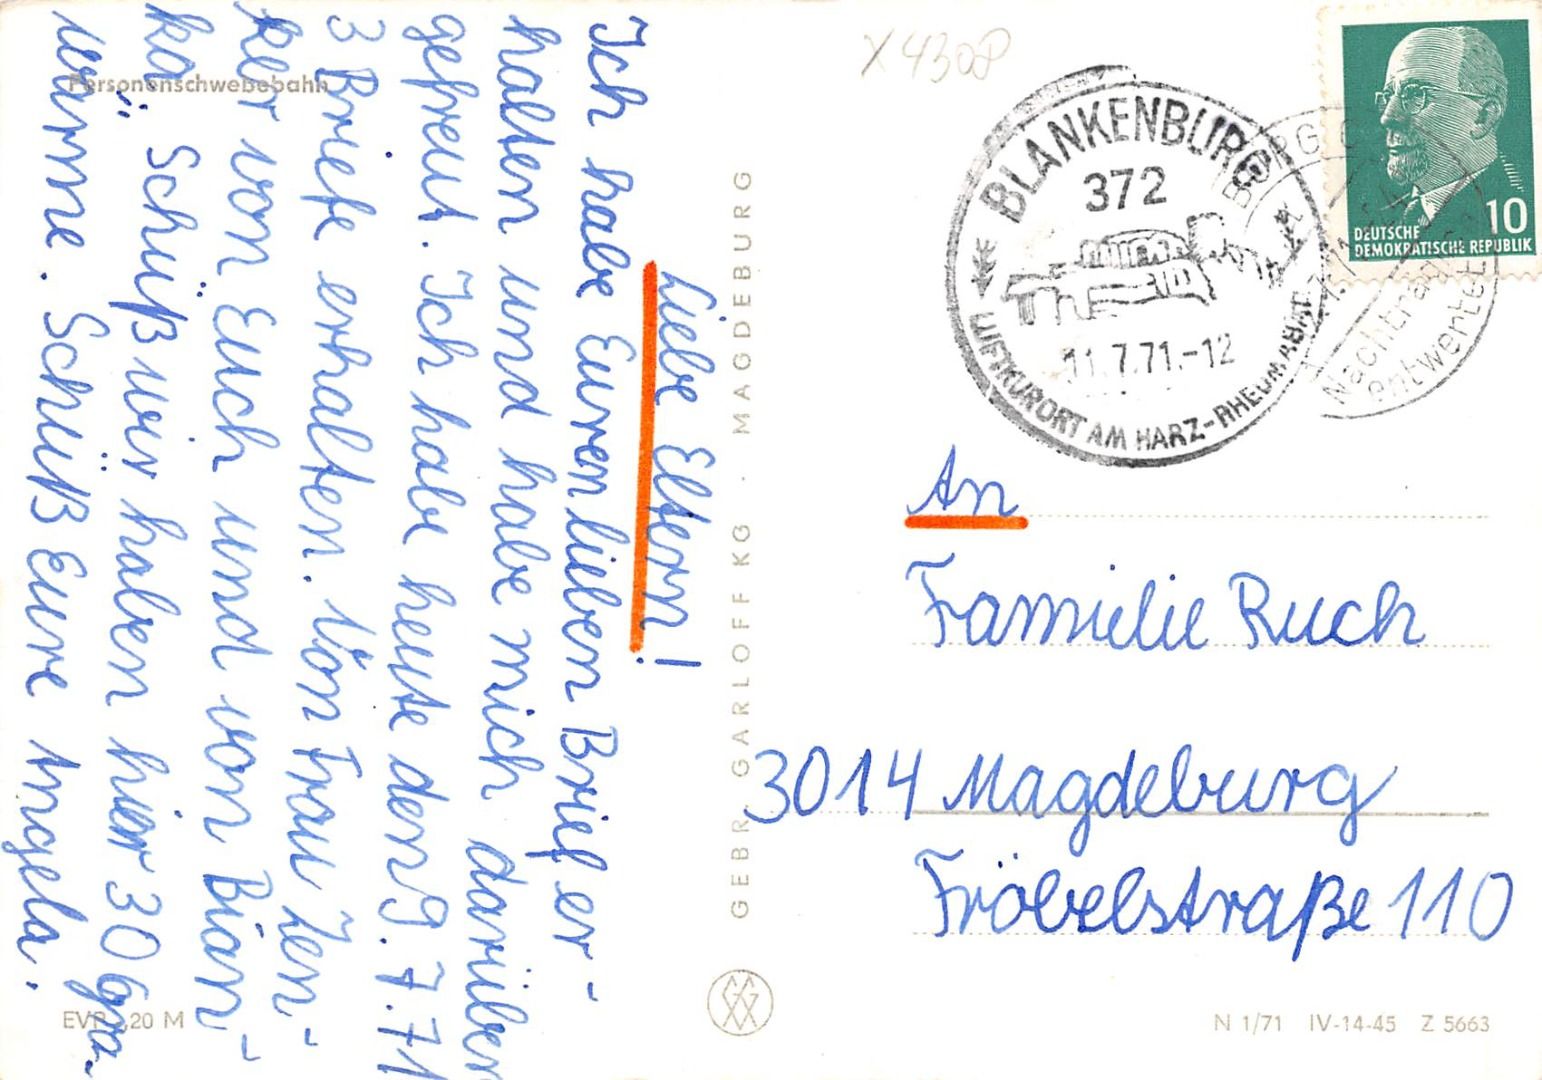 Personenschwebebahn
Liebe Eltern!
Ich habe Euren lieben Brief er-
halten und habe mich darüber
gefreut. Ich habe heute den 9.7.71
3 Briefe erhalten. Von Frau Zen-
ker von Euch und von Bian-
ka. Schüß wir haben hier 30 Gra-
wärme. Schüß Eure Angela.
EVP 0,20 M
GEBR. GARLOFF KG · MAGDEBURG
X 4308
BLANKENBURG
372
11.7.71.-12
LUFTKURORT AM HARZ-RHEUMABAD
Nachträglich
entwertet
10
DEUTSCHE
DEMOKRATISCHE REPUBLIK
An
Familie Ruch
3014 Magdeburg
Fröbelstraße 110
N 1/71 IV-14-45 Z 5663